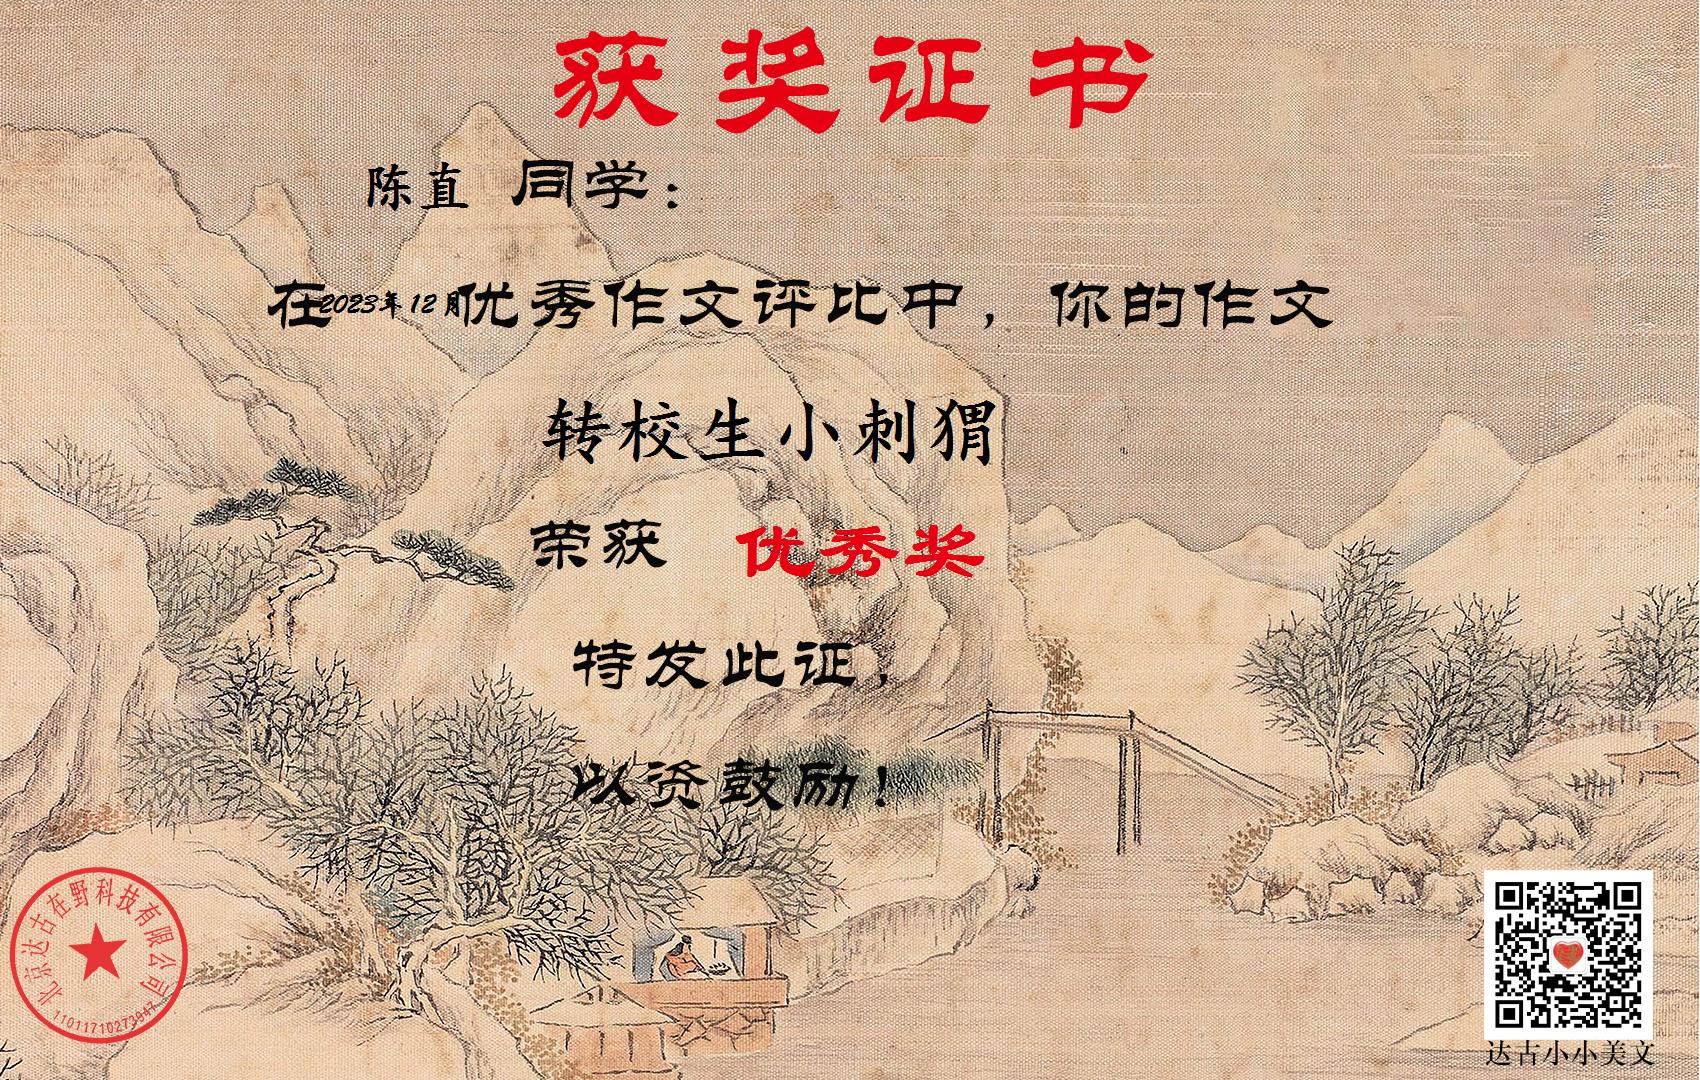 获奖证书
陈直 同学：
在2023年12月优秀作文评比中，你的作文
转校生小刺猬
荣获 优秀奖
特发此证，
以资鼓励！
北京达古在野科技有限公司
11011710273947
达古小小美文